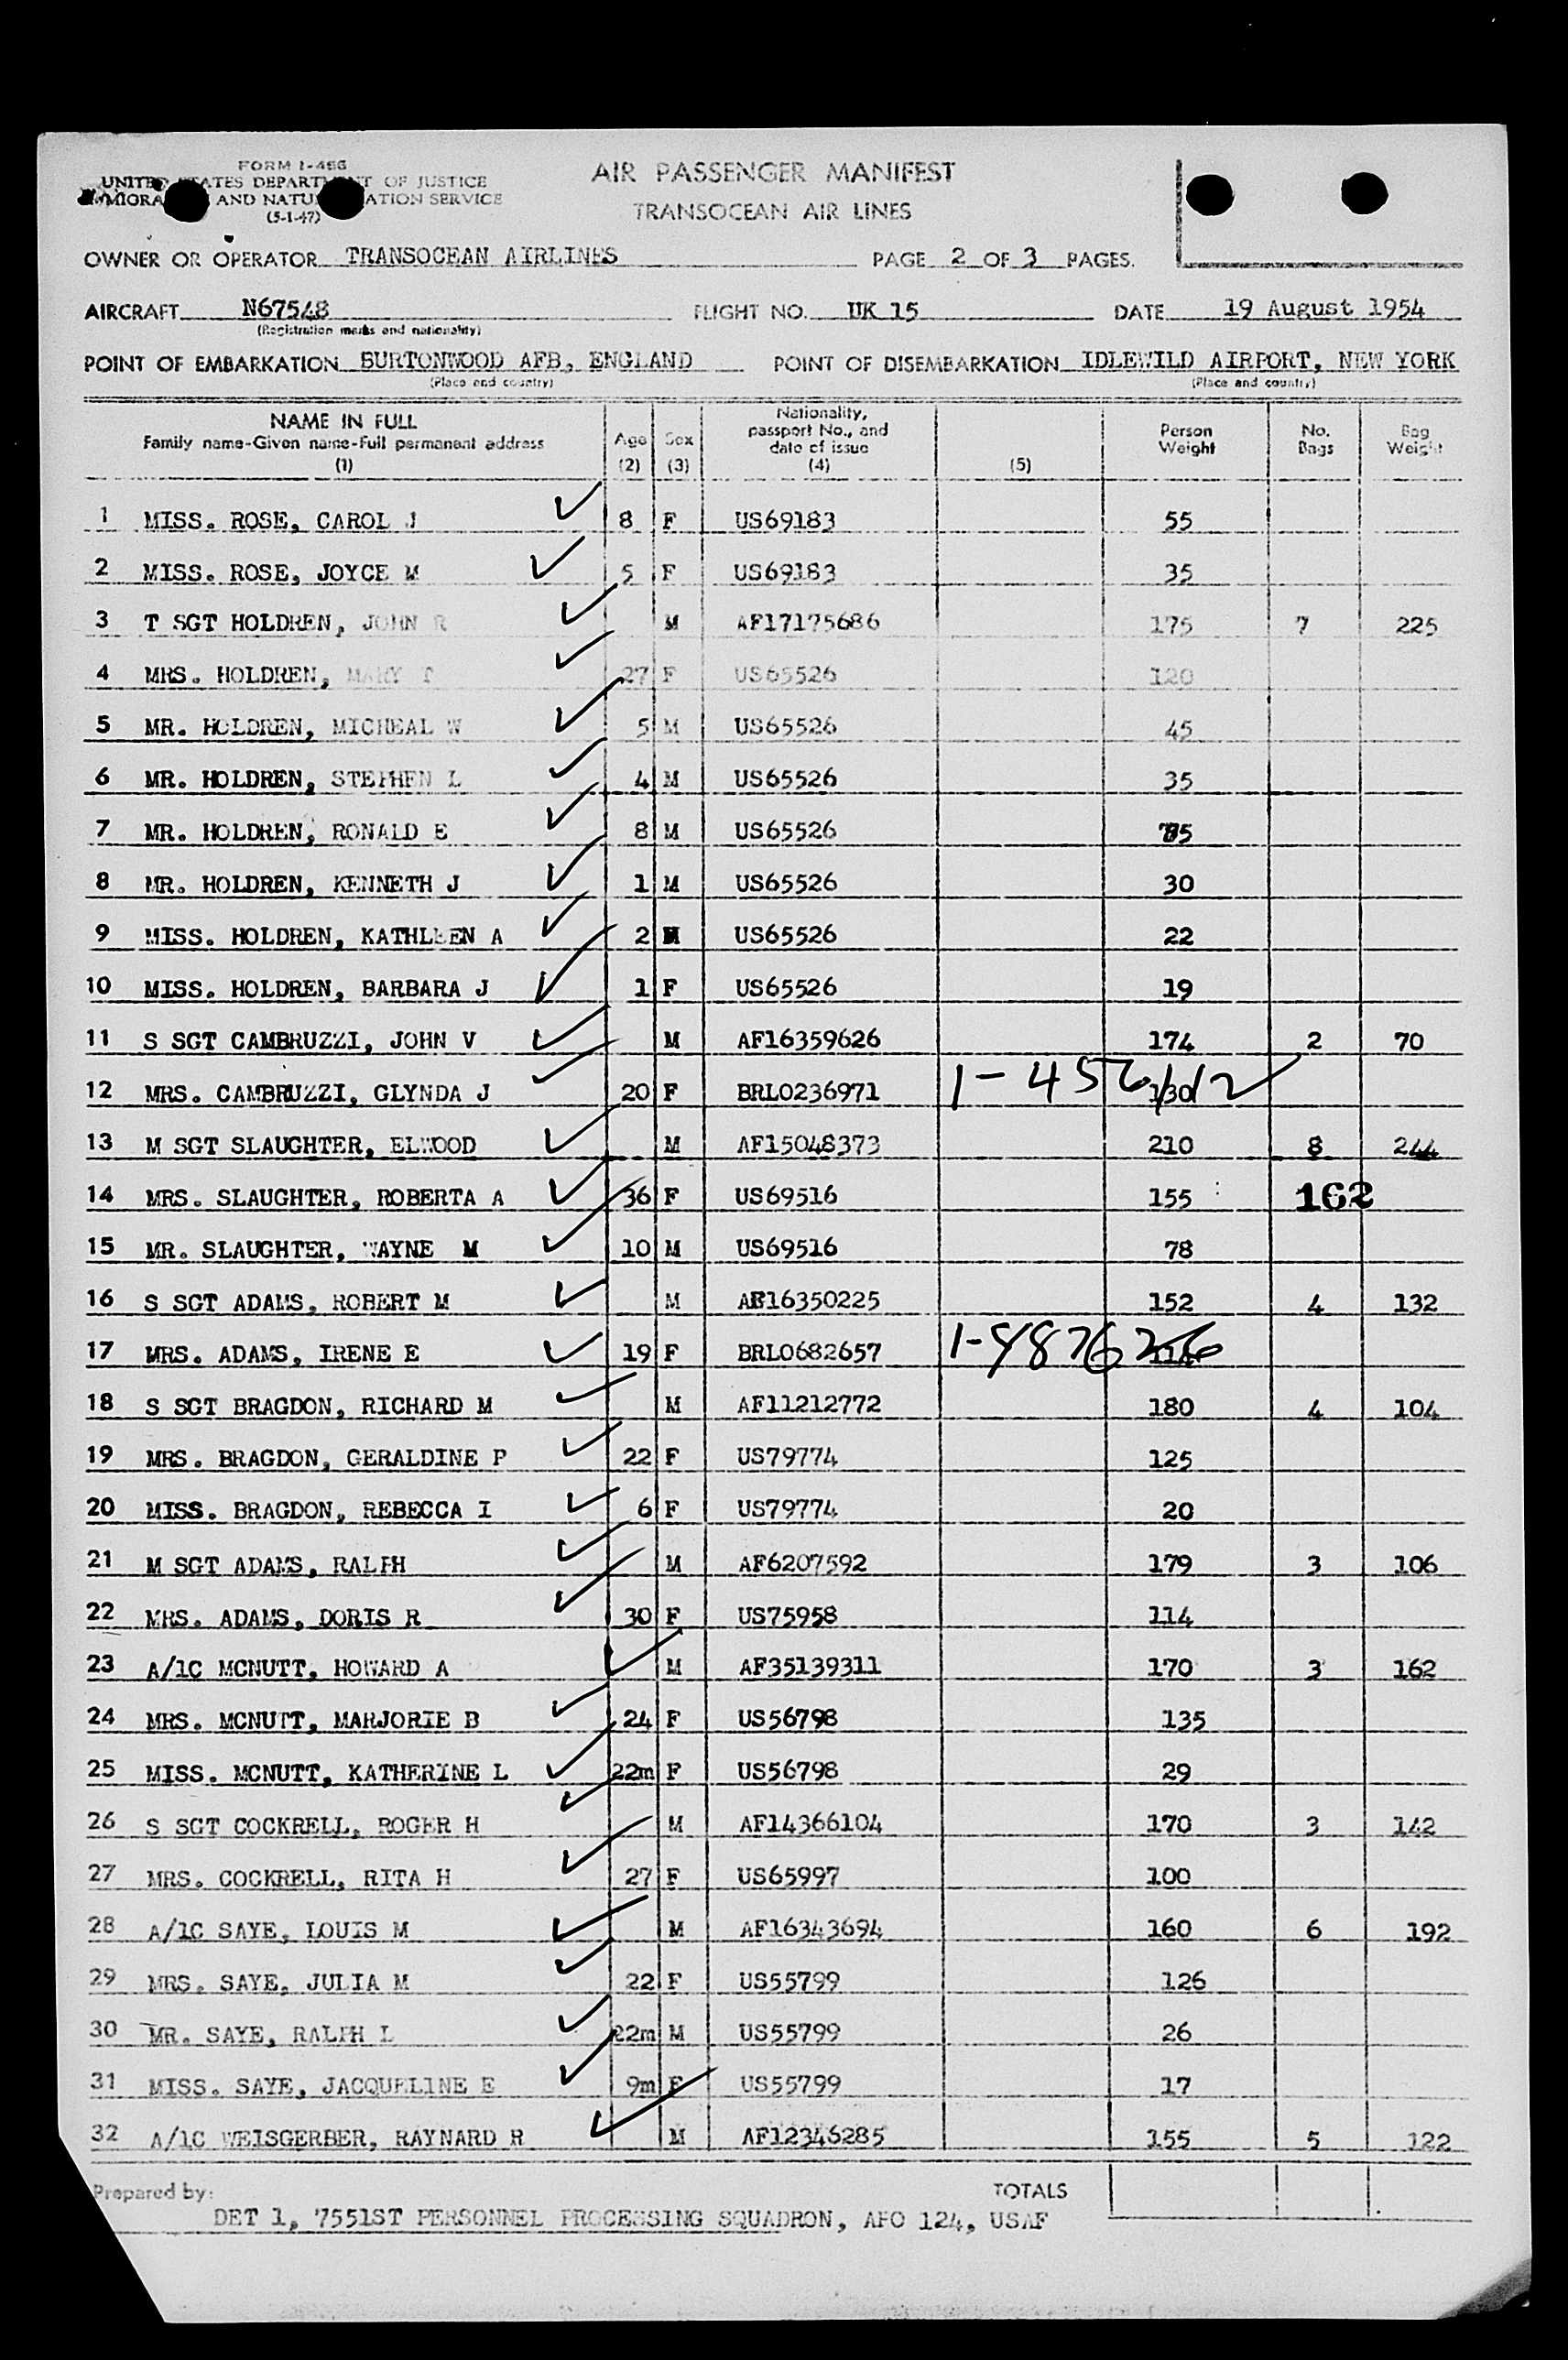 FORM I-466
UNITED STATES DEPARTMENT OF JUSTICE
AND NATU ATION SERVICE
(5-1-47)
AIR PASSENGER MANIFEST
TRANSOCEAN AIR LINES
OWNER OR OPERATOR TRANSOCEAN AIRLINES PAGE 2 OF 3 PAGES.
AIRCRAFT N67548 FLIGHT NO. UK 15 DATE 19 August 1954
(Registration marks and nationality)
POINT OF EMBARKATION BURTONWOOD AFB, ENGLAND POINT OF DISEMBARKATION IDLEWILD AIRPORT, NEW YORK
(Place and country) (Place and country)
NAME IN FULL
Family name-Given name-Full permanent address
(1)
Age
(2)
Sex
(3)
Nationality,
passport No., and
date of issue
(4)
(5)
Person
Weight
No.
Bags
Bag
Weight
1 MISS. ROSE, CAROL J 8 F US69183 55
2 MISS. ROSE, JOYCE M 5 F US69183 35
3 T SGT HOLDREN, JOHN R M AF17175686 175 7 225
4 MRS. HOLDREN, MARY T 27 F US65526 120
5 MR. HOLDREN, MICHEAL W 5 M US65526 45
6 MR. HOLDREN, STEPHEN L 4 M US65526 35
7 MR. HOLDREN, RONALD E 8 M US65526
8 MR. HOLDREN, KENNETH J 1 M US65526 30
9 MISS. HOLDREN, KATHLEEN A 2 US65526 22
10 MISS. HOLDREN, BARBARA J 1 F US65526 19
11 S SGT CAMBRUZZI, JOHN V M AF16359626 174 2 70
12 MRS. CAMBRUZZI, GLYNDA J 20 F BRLO236971 130
13 M SGT SLAUGHTER, ELWOOD M AF15048373 210 8 244
14 MRS. SLAUGHTER, ROBERTA A 36 F US69516 155 162
15 MR. SLAUGHTER, WAYNE M 10 M US69516 78
16 S SGT ADAMS, ROBERT M M AF16350225 152 4 132
17 MRS. ADAMS, IRENE E 19 F BRLO682657
18 S SGT BRAGDON, RICHARD M M AF11212772 180 4 104
19 MRS. BRAGDON, GERALDINE P 22 F US79774 125
20 MISS. BRAGDON, REBECCA I 6 F US79774 20
21 M SGT ADAMS, RALPH M AF6207592 179 3 106
22 MRS. ADAMS, DORIS R 30 F US75958 114
23 A/1C MCNUTT, HOWARD A M AF35139311 170 3 162
24 MRS. MCNUTT, MARJORIE B 24 F US56798 135
25 MISS. MCNUTT, KATHERINE L 22m F US56798 29
26 S SGT COCKRELL, ROGER H M AF14366104 170 3 142
27 MRS. COCKRELL, RITA H 27 F US65997 100
28 A/1C SAYE, LOUIS M M AF16343694 160 6 192
29 MRS. SAYE, JULIA M 22 F US55799 126
30 MR. SAYE, RALPH L 22m M US55799 26
31 MISS. SAYE, JACQUELINE E 9m F US55799 17
32 A/1C WEISGERBER, RAYNARD R M AF12346285 155 5 122
Prepared by: TOTALS
DET 1, 7551ST PERSONNEL PROCESSING SQUADRON, APO 124, USAF